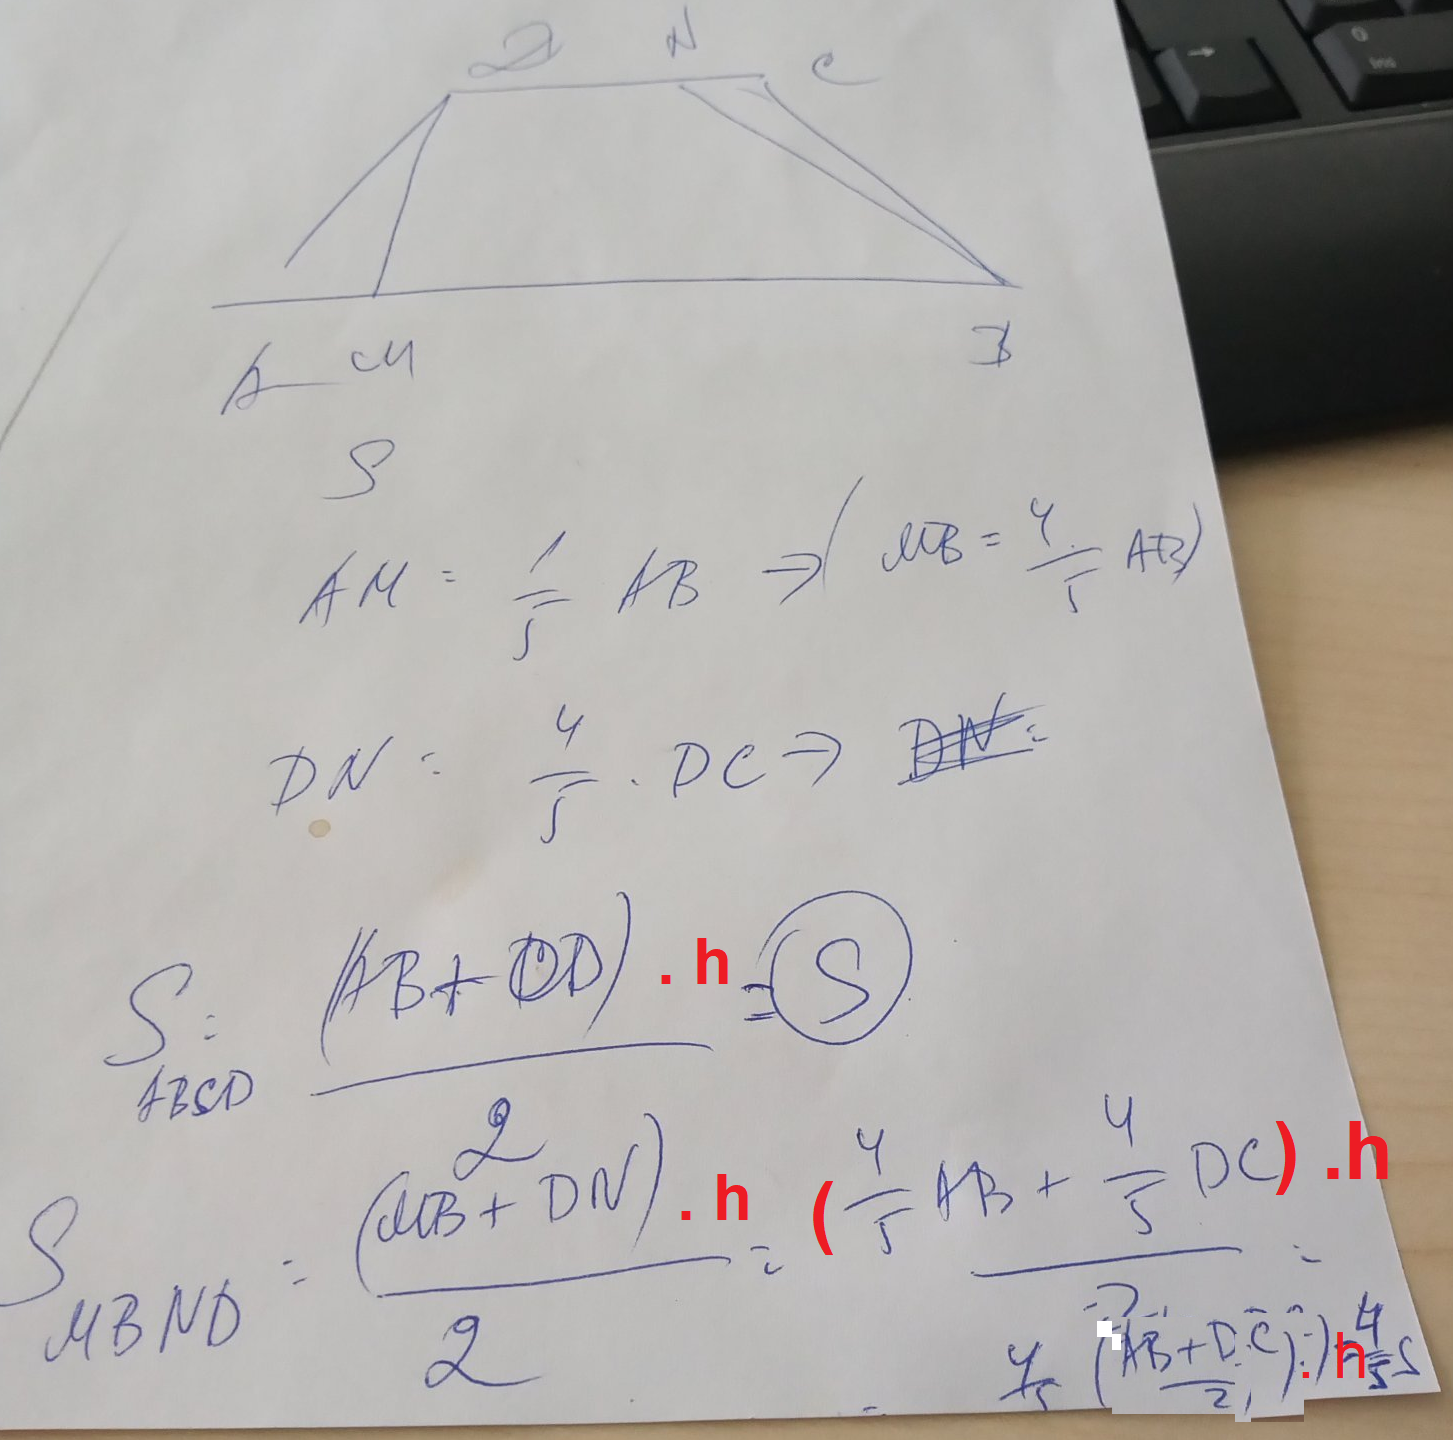 D N C
A M B
S
AM = 1/5 AB => (MB = 4/5 AB)
DN = 4/5 . DC => DN =
S ABCD = (AB + CD) . h / 2 = S
S MBND = (MB + DN) . h / 2 = (4/5 AB + 4/5 DC) . h / 2 =
= 4/5 (AB + DC / 2) . h = 4/5 S